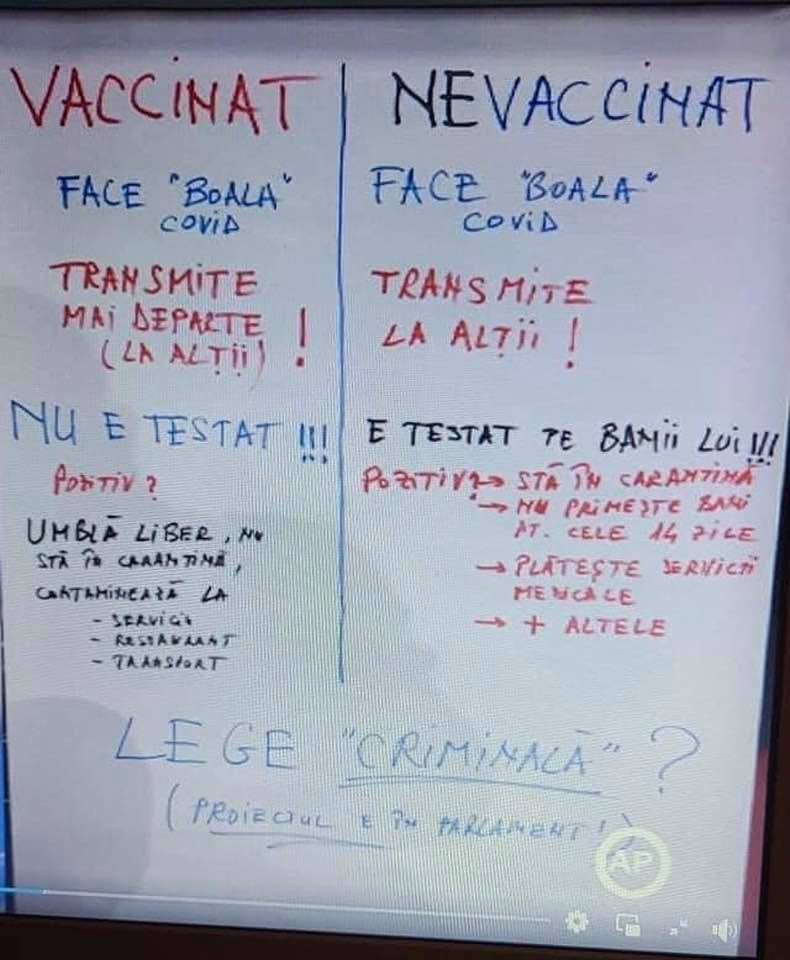 VACCINAT
FACE "BOALA"
COVID
TRANSMITE
MAI DEPARTE
(LA ALȚII) !
NU E TESTAT !!!
POZITIV ?
UMBLĂ LIBER, NU
STĂ ÎN CARANTINĂ,
CONTAMINEAZĂ LA
- SERVICI
- RESTAURANT
- TRANSPORT
NEVACCINAT
FACE "BOALA"
COVID
TRANSMITE
LA ALȚII !
E TESTAT PE BANII LUI !!!
POZITIV? → STĂ ÎN CARANTINĂ
→ NU PRIMEȘTE BANI
PT. CELE 14 ZILE
→ PLĂTEȘTE SERVICII
MEDICALE
→ + ALTELE
LEGE "CRIMINALĂ" ?
(PROIECTUL E ÎN PARLAMENT!)
AP